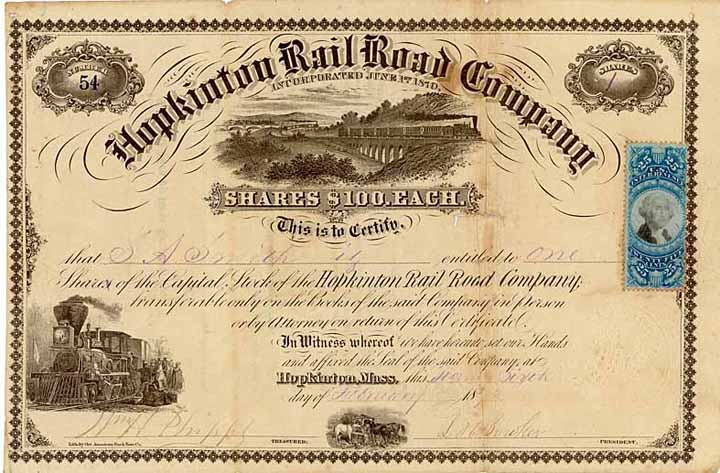 NUMBER
54
SHARES
1
Hopkinton Rail Road Company
INCORPORATED JUNE 1st 1870.
SHARES $100. EACH.
This is to Certify,
that S A Smith entitled to One
Shares of the Capital Stock of the Hopkinton Rail Road Company,
transferable only on the Books of the said Company in Person
or by Attorney on return of this Certificate.
In Witness whereof we have hereunto set our Hands
and affixed the Seal of the said Company, at
Hopkinton, Mass. this
day of February 18
Phipps
TREASURER.
PRESIDENT.
Lith. by the American Bank Note Co.
25
25
25
25